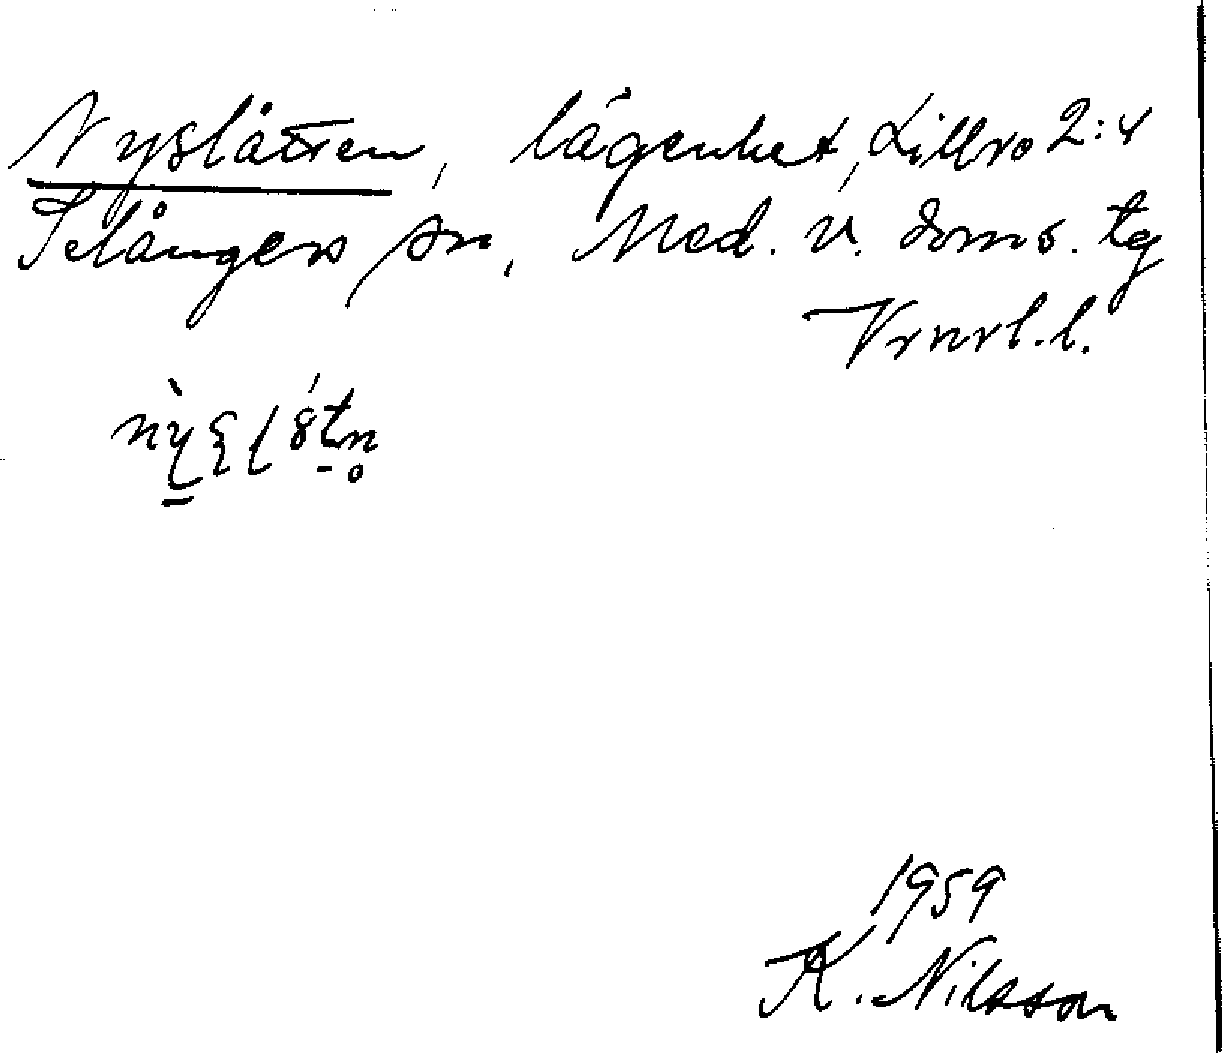 Nyslåtten, lägenhet, Lillro 2:4
Selångers sn, Med. v. doms. tg
Vrnrl.l.
1959
K. Nilsson